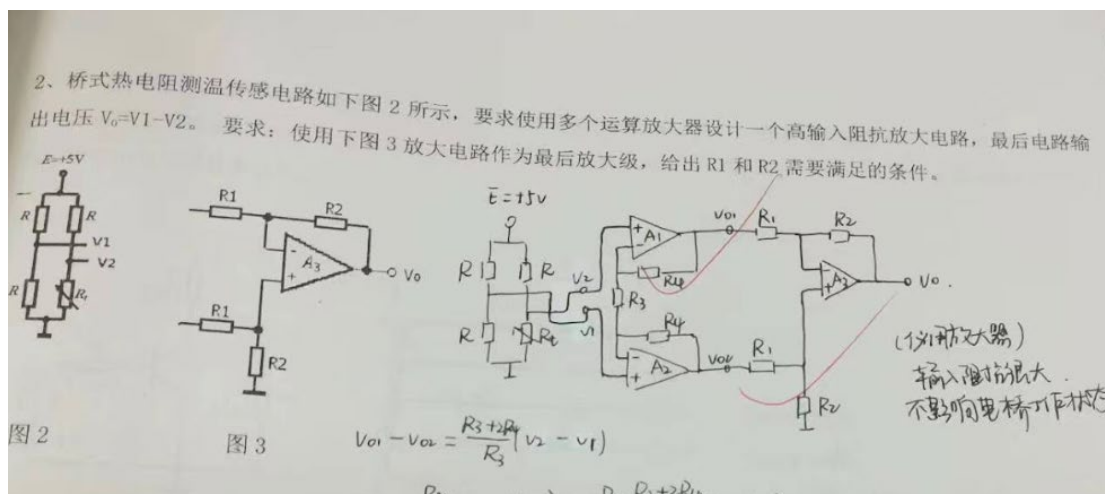 2、桥式热电阻测温传感电路如下图 2 所示，要求使用多个运算放大器设计一个高输入阻抗放大电路，最后电路输
出电压 V₀=V1-V2。 要求：使用下图 3 放大电路作为最后放大级，给出 R1 和 R2 需要满足的条件。
E=+5V
R
R
V1
V2
R
Rt
图 2
R1
R2
-
A3
+
V0
R1
R2
图 3
E=+5V
R
R
R
Rt
V2
V1
+
A1
-
R4
R3
R4
-
A2
+
Vo1
Vo2
R1
R2
-
A3
+
Vo.
R1
R2
(仪用放大器)
输入阻抗很大.
不影响电桥工作状态
Vo1 - Vo2 = (R3+2R4)/R3 (V2 - V1)